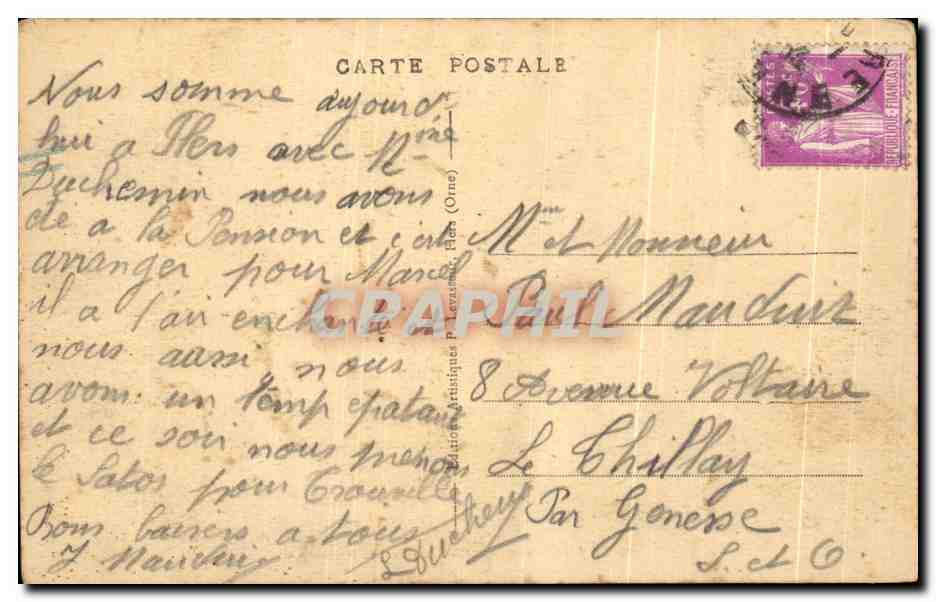 CARTE POSTALE
Nous somme aujourd'
hui a Flers avec Mme
Duchemin nous avons
été a la Pension et c'est
arranger pour Marcel
il a l'air enchanté et
nous aussi, nous
avons un temp epatant
et ce soir nous prenons
le pour Trouville
Bons baisers a tous
Mauduit
L Duchemin
Editions Artistiques P. Levasseur, Flers (Orne)
POSTES
REPUBLIQUE-FRANÇAISE
Mme et Monsieur
Paul Mauduit
8 Avenue Voltaire
Le Thillay
Par Gonesse
S. et O.
CPAPHIL